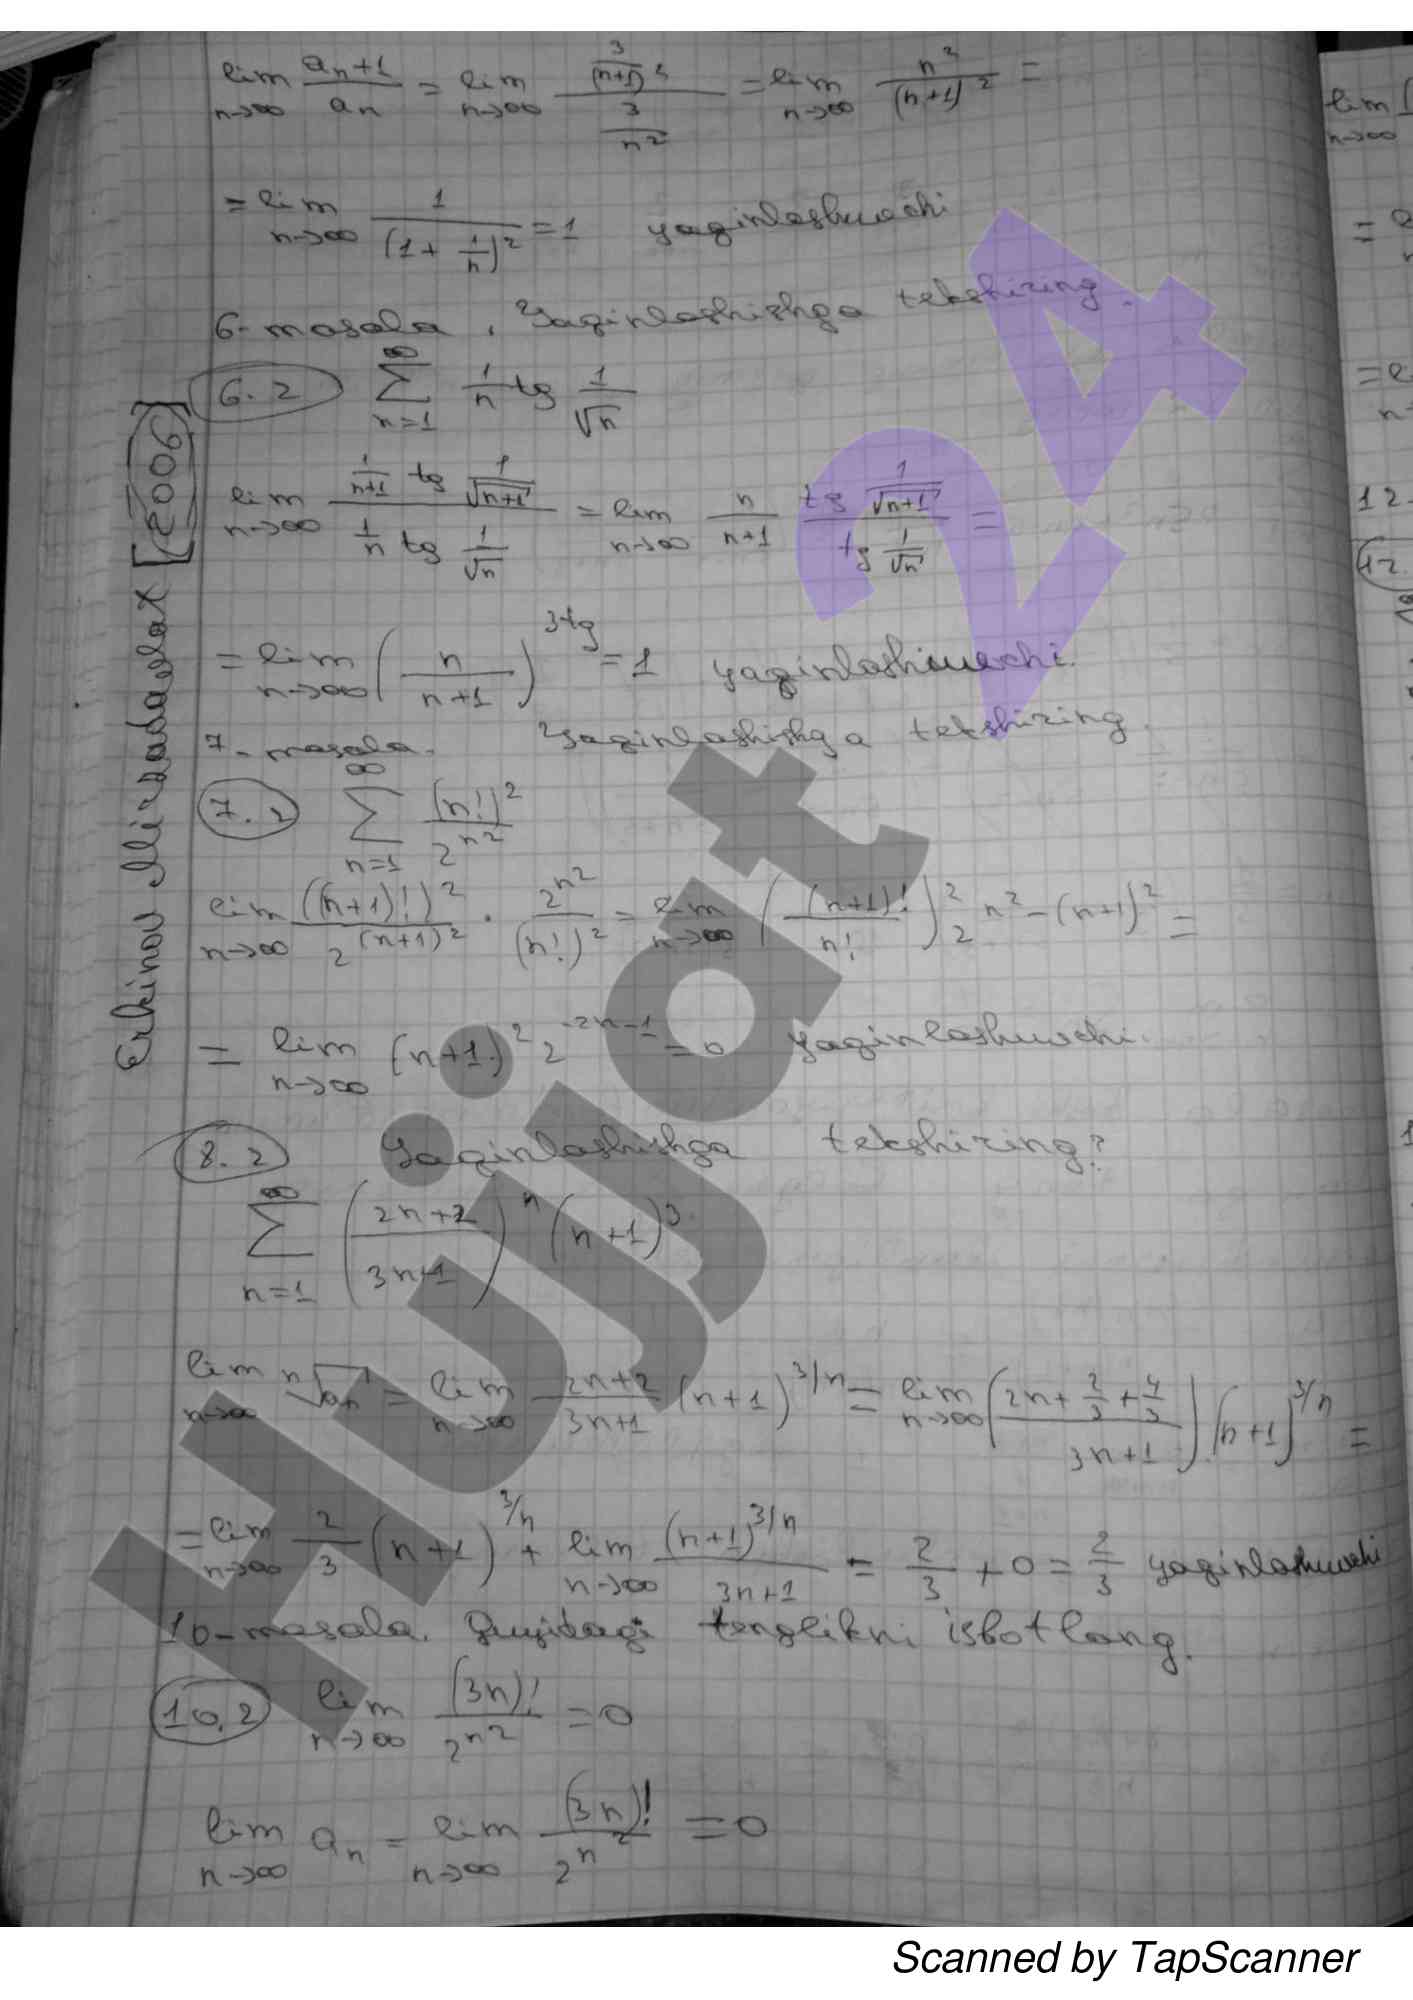 lim n→∞ a_n+1 / a_n = lim n→∞ (3/(n+1)²) / (3/n²) = lim n→∞ n²/(n+1)² =
= lim n→∞ 1/(1+1/n)² = 1 yaqinlashuvchi
6-masala. Yaqinlashishga tekshiring.
6.2 ∑ n=1 ∞ 1/n tg 1/√n
lim n→∞ (1/(n+1) tg 1/√(n+1)) / (1/n tg 1/√n) = lim n→∞ n/(n+1) (tg 1/√(n+1)) / (tg 1/√n) =
= lim n→∞ (n/(n+1))^3tg = 1 yaqinlashuvchi.
7-masala. Yaqinlashishga tekshiring.
7.2 ∑ n=1 ∞ (n!)²/2^n²
lim n→∞ ((n+1)!)²/2^(n+1)² · 2^n²/(n!)² = lim n→∞ ((n+1)!/n!)² 2^n²-(n+1)² =
= lim n→∞ (n+1)² 2^-2n-1 = 0 yaqinlashuvchi.
8.2 Yaqinlashishga tekshiring?
∑ n=1 ∞ ((2n+2)/(3n+1))^n (n+1)³
lim n→∞ ⁿ√a_n = lim n→∞ (2n+2)/(3n+1) (n+1)^3/n = lim n→∞ ((2n+2/3+4/3)/(3n+1)) · (n+1)^3/n =
= lim n→∞ 2/3 (n+1)^3/n + lim n→∞ (n+1)^3/n / (3n+1) = 2/3 + 0 = 2/3 yaqinlashuvchi
10-masala. Quyidagi tenglikni isbotlang.
10.2 lim n→∞ (3n)!/2^n² = 0
lim n→∞ a_n = lim n→∞ (3n)!/2^n² = 0
Erkinov Mirzadavlat [2006]
Hujjat 24
lim n→∞
=
12
12.
1
Scanned by TapScanner